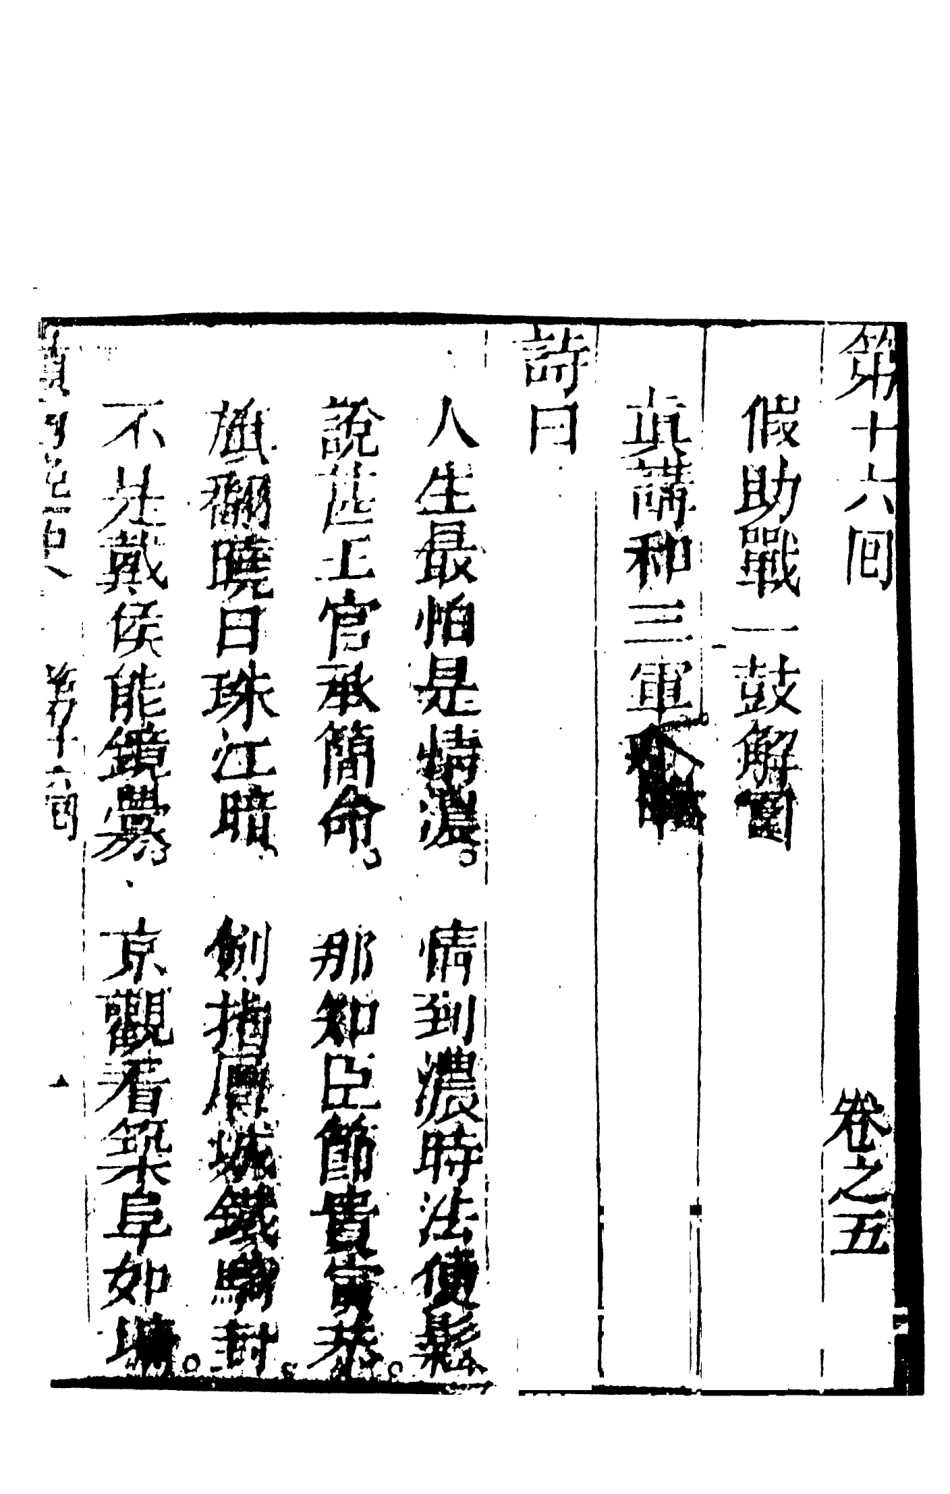 第十六回 卷之五
假助戰一鼓解圍
真講和三軍
詩曰
人生最怕是情濃。 情到濃時法便鬆
說甚王官承簡命。 那知臣節貴寅恭。
旗翻曉日珠江暗 劍指層城鐵騎封
不是戴侯能鏡 京觀看築阜如墉。
艷史 第十六回